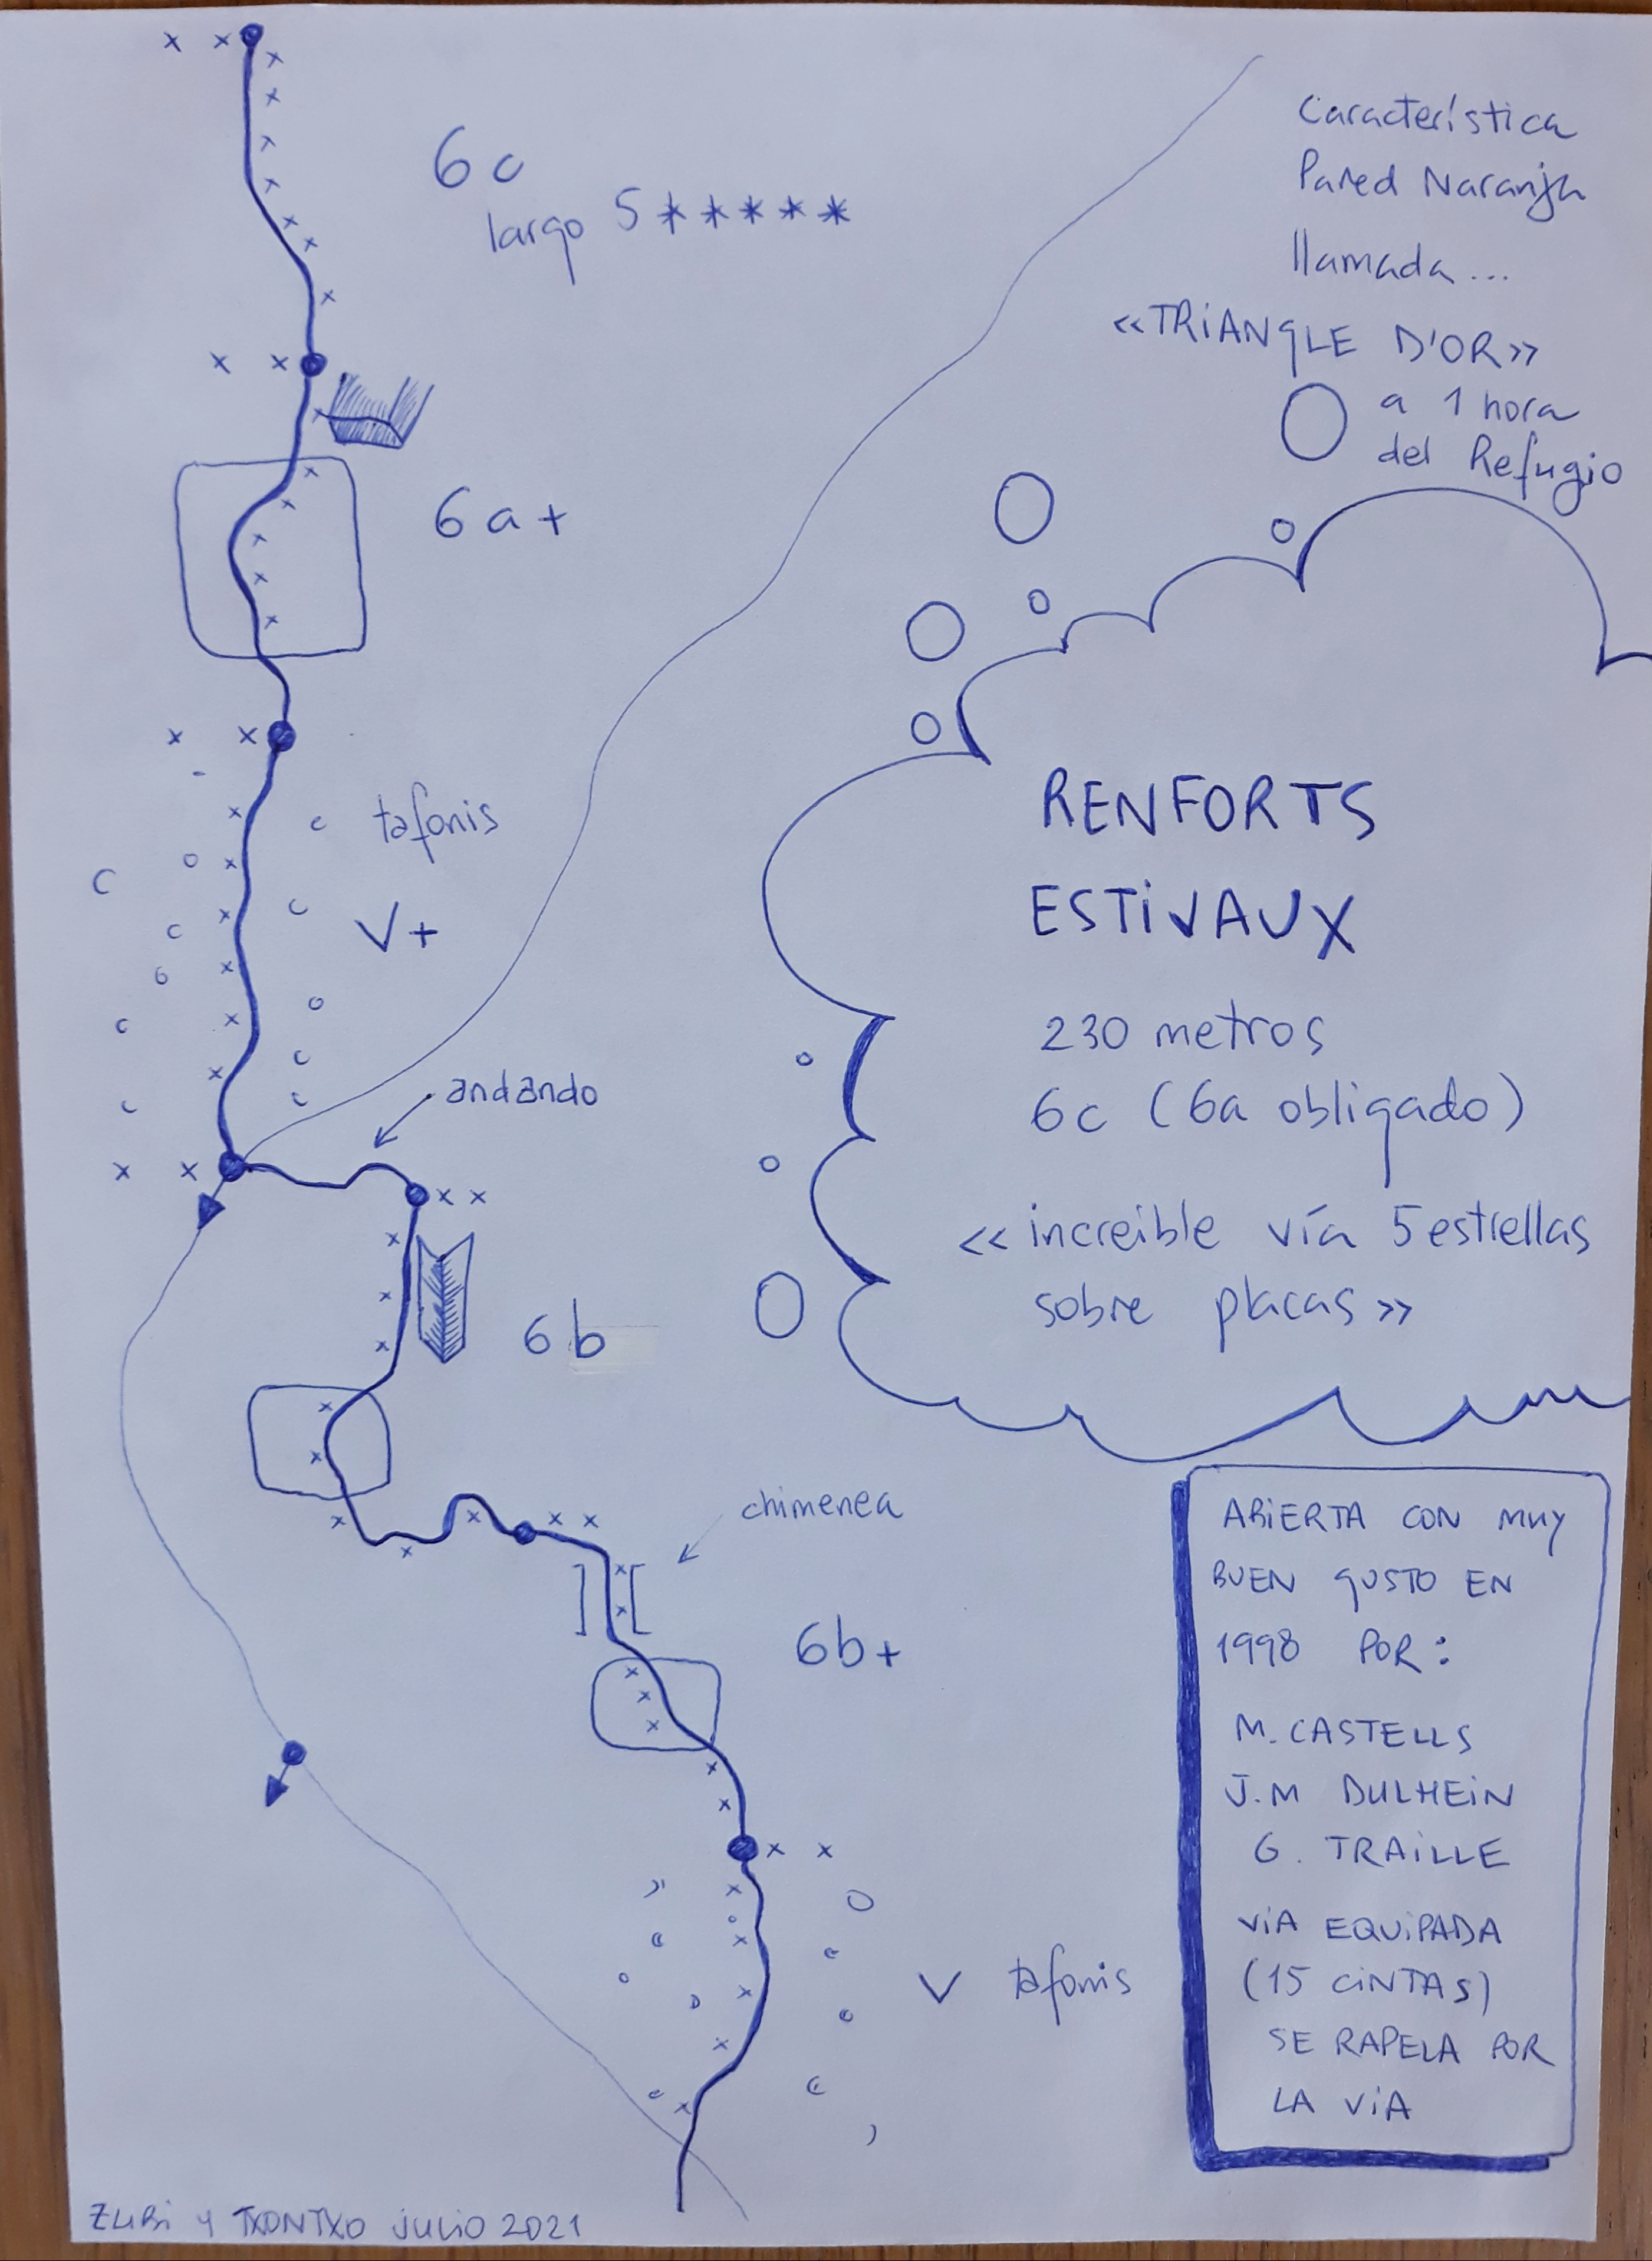 6c
largo 5 * * * * *
Característica
Pared Naranja
llamada...
«TRiANGLE D'OR»
a 1 hora
del Refugio
6a+
tafonis
V+
andando
RENFORTS
ESTiVAUX
230 metros
6c (6a obligado)
« increible vía 5 estrellas
sobre placas »
6b
chimenea
6b+
V tafonis
ABiERTA CON MUY
BUEN GUSTO EN
1998 POR:
M. CASTELLS
J.M DULHEiN
G. TRAiLLE
ViA EQUiPADA
(15 CiNTAS)
SE RAPELA POR
LA ViA
ZUBi Y TXONTXO JULiO 2021